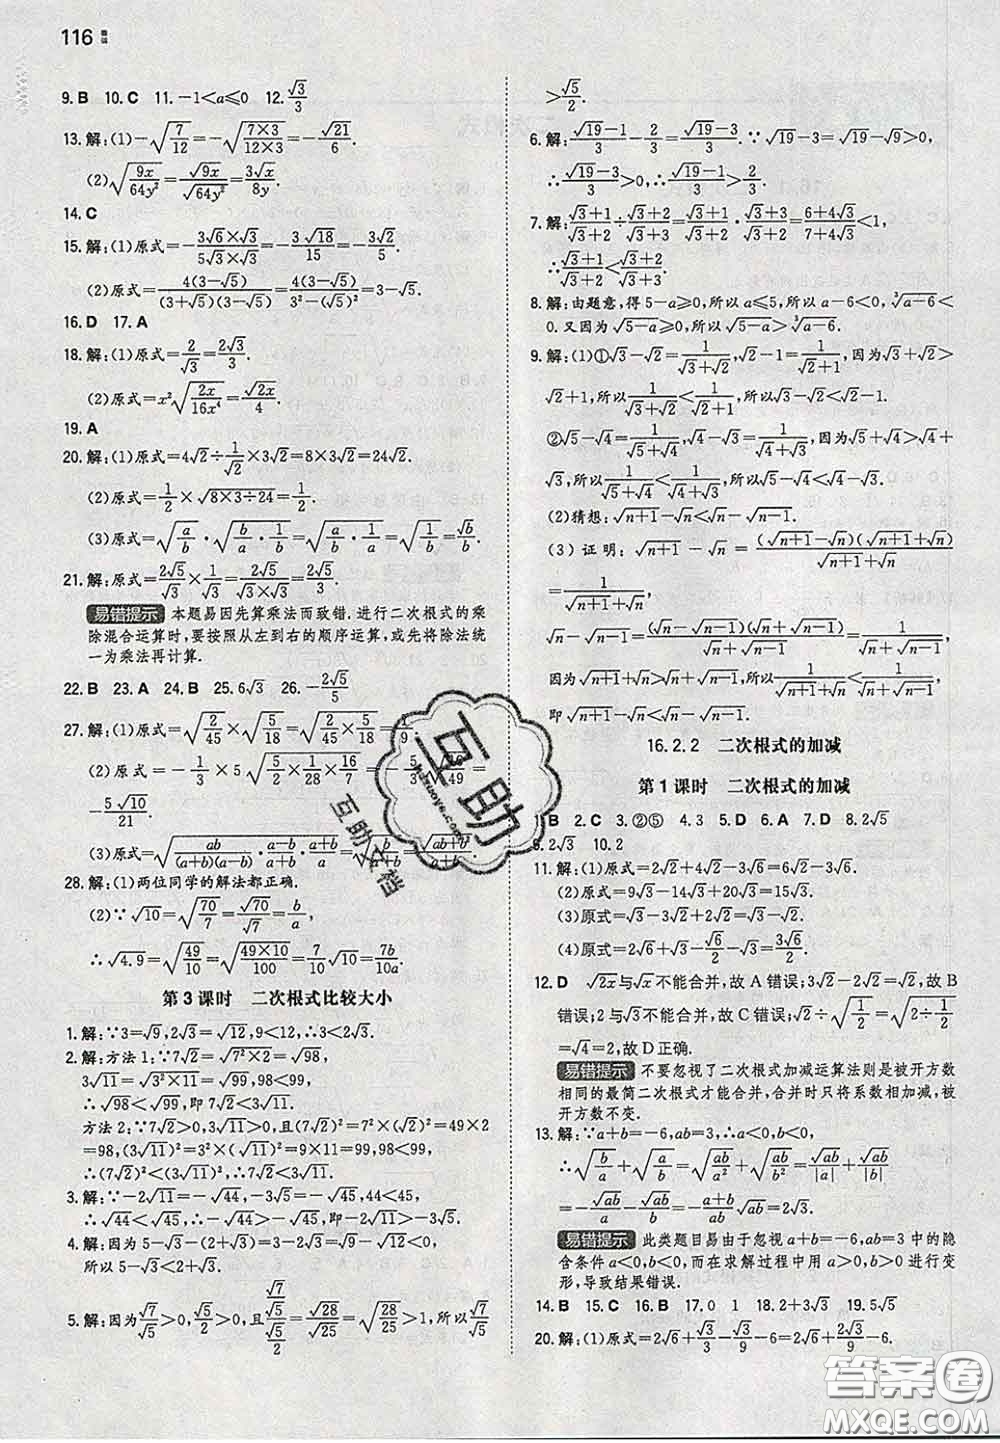 116
9. B 10. C 11. −1<a≤0 12. √3/3
13. 解:(1)−√(7/12)=−√((7×3)/(12×3))=−√21/6.
(2)√(9x/(64y²))=√(9x)/√(64y²)=3√x/(8y).
14. C
15. 解:(1)原式=−(3√6×√3)/(5√3×√3)=−3√18/15=−3√2/5.
(2)原式=4(3−√5)/((3+√5)(3−√5))=4(3−√5)/(3²−(√5)²)=3−√5.
16. D 17. A
18. 解:(1)原式=2/√3=2√3/3.
(2)原式=x²√(2x/(16x⁴))=√(2x)/4.
19. A
20. 解:(1)原式=4√2÷1/√2×3√2=8×3√2=24√2.
(2)原式=1/2×√(8×3÷24)=1/2.
(3)原式=√(a/b)·√(b/a·1/b)=√(a/b·1/a)=√(1/b)=√b/b.
21. 解:原式=2√5/√3×1/√3=2√5/(√3×√3)=2√5/3.
易错提示 本题易因先算乘法而致错. 进行二次根式的乘
除混合运算时,要按照从左到右的顺序运算,或先将除法统
一为乘法再计算.
22. B 23. A 24. B 25. 6√3 26. −2√5/5
27. 解:(1)原式=√(2/45)×√(5/18)=√(2/45×5/18)=
(2)原式=−5/6×2√(5/28×16/7)=
−5√10/21.
(3)原式=√(ab/((a+b)(a−b))·(a−b)/a·(a+b)/b)=
28. 解:(1)两位同学的解法都正确.
(2)∵√10=√(70/7)=√70/√7=b/a,
∴√4.9=√(49/10)=√((49×10)/100)=7/10√10=7b/(10a).
第 3 课时 二次根式比较大小
1. 解:∵3=√9,2√3=√12,9<12,∴3<2√3.
2. 解:方法 1:∵7√2=√(7²×2)=√98,
3√11=√(3²×11)=√99,
∴√98<√99,即7√2<3√11.
方法 2:∵7√2>0,3√11>0,且(7√2)²=7²×(√2)²=49×2
=98,(3√11)²=3²×(√11)²=9×11=99,98<99,
∴(7√2)²<(3√11)²,∴7√2<3√11.
3. 解:∵−2√11=−√44,−3√5=−√45,
∴√44<√45,∴−√44>−√45,即−2√11>−3√5.
4. 解:因为5−√3−(2+√3)=3−2√3=√9−√12<0,
所以5−√3<2+√3.
5. 解:因为√7/√5>0,√5/2>0,且(√7/√5)/(√5/2)=√28/√25=√(28/25)>1,所以√7/√5
>√5/2.
6. 解:(√19−1)/3−2/3=(√19−3)/3.∵√19−3=√19−√9>0,
∴(√19−3)/3>0,∴(√19−1)/3>2/3.
7. 解:(√3+1)/(√3+2)÷(√3+2)/(√3+3)=(√3+1)/(√3+2)·(√3+3)/(√3+2)=(6+4√3)/(7+4√3)<1,
∴(√3+1)/(√3+2)<(√3+2)/(√3+3).
8. 解:由题意,得5−a≥0,所以a≤5,所以a−6<0,∛(a−6)<
0. 又因为√(5−a)≥0,所以√(5−a)>∛(a−6).
9. 解:(1)①√3−√2=1/(√3+√2),√2−1=1/(√2+1),因为√3+√2>
√2+1,所以1/(√3+√2)<1/(√2+1),所以√3−√2<√2−1.
②√5−√4=1/(√5+√4),√4−√3=1/(√4+√3),因为√5+√4>√4+
√3,所以1/(√5+√4)<1/(√4+√3),所以√5−√4<√4−√3.
(2)猜想:√(n+1)−√n<√n−√(n−1).
(3)证明:√(n+1)−√n=(√(n+1)−√n)(√(n+1)+√n)/(√(n+1)+√n)
=1/(√(n+1)+√n),
√n−√(n−1)=(√n−√(n−1))(√n+√(n−1))/(√n+√(n−1))=1/(√n+√(n−1)),
因为√(n+1)+√n>√n+√(n−1),所以1/(√(n+1)+√n)<1/(√n+√(n−1)),
即√(n+1)−√n<√n−√(n−1).
16.2.2 二次根式的加减
第 1 课时 二次根式的加减
1. B 2. C 3. ②⑤ 4. 3 5. D 6. A 7. D 8. 2√5
9. 2√3 10. 2
11. 解:(1)原式=2√2+4√2−3√3=6√2−3√3.
(2)原式=9√3−14√3+20√3=15√3.
(3)原式=√3−3√2+2√2−√3=−√2.
(4)原式=2√6+√3−√6/2−√3=3√6/2.
12. D √(2x)与√x不能合并,故 A 错误;3√2−2√2=√2,故 B
错误;2 与√3不能合并,故 C 错误;√2÷√(1/2)=√(2÷1/2)=
√4=2,故 D 正确.
易错提示 不要忽视了二次根式加减运算法则是被开方数
相同的最简二次根式才能合并,合并时只将系数相加减,被
开方数不变.
13. 解:∵a+b=−6,ab=3,∴a<0,b<0,
∴√(b/a)+√(a/b)=√(ab/a²)+√(ab/b²)=√(ab)/|a|+√(ab)/|b|
=−√(ab)/a−√(ab)/b=−(a+b)/(ab)√(ab)=2√3.
易错提示 此类题目易由于忽视a+b=−6,ab=3中的隐
含条件a<0,b<0,而在求解过程中对所求代数式进行变
形,导致结果错误.
14. B 15. C 16. B 17. 0 1 18. 2+3√3 19. 5√5
20. 解:(1)原式=2√6+√3/3−√3/9−6=2√6+2√3/9−6.
互助
互助文档
答案圈
MXQE.COM